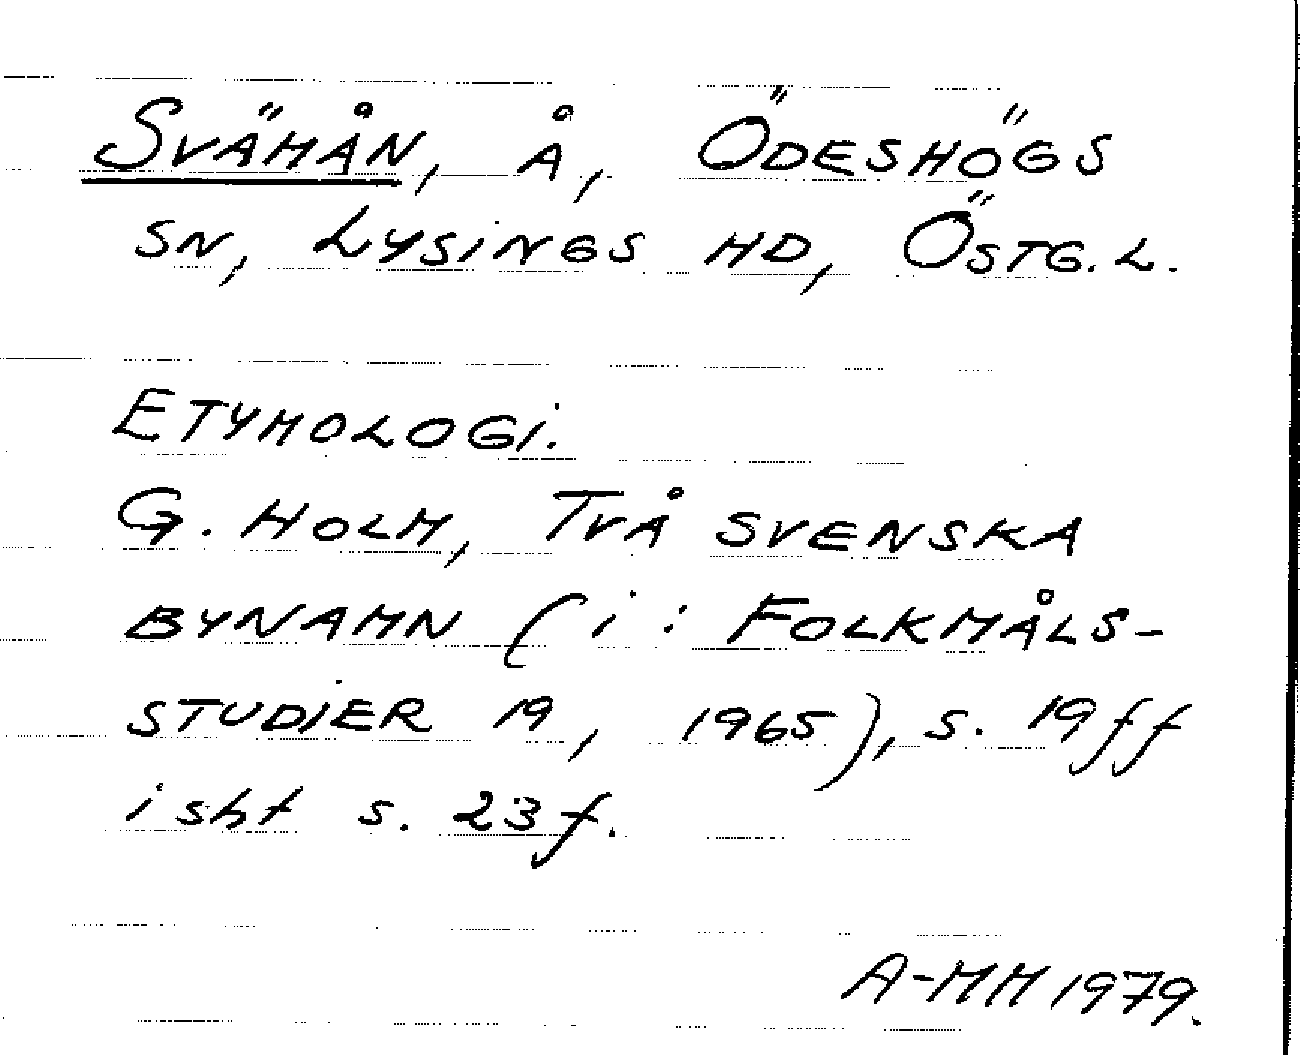 SVÄMÅN, Å, ÖDESHÖGS
SN, LYSINGS HD, ÖSTG.L.
ETYMOLOGI.
G. HOLM, TVÅ SVENSKA
BYNAMN (i: FOLKMÅLS-
STUDIER 19, 1965), S. 19ff
isht s. 23f.
A-MM 1979.